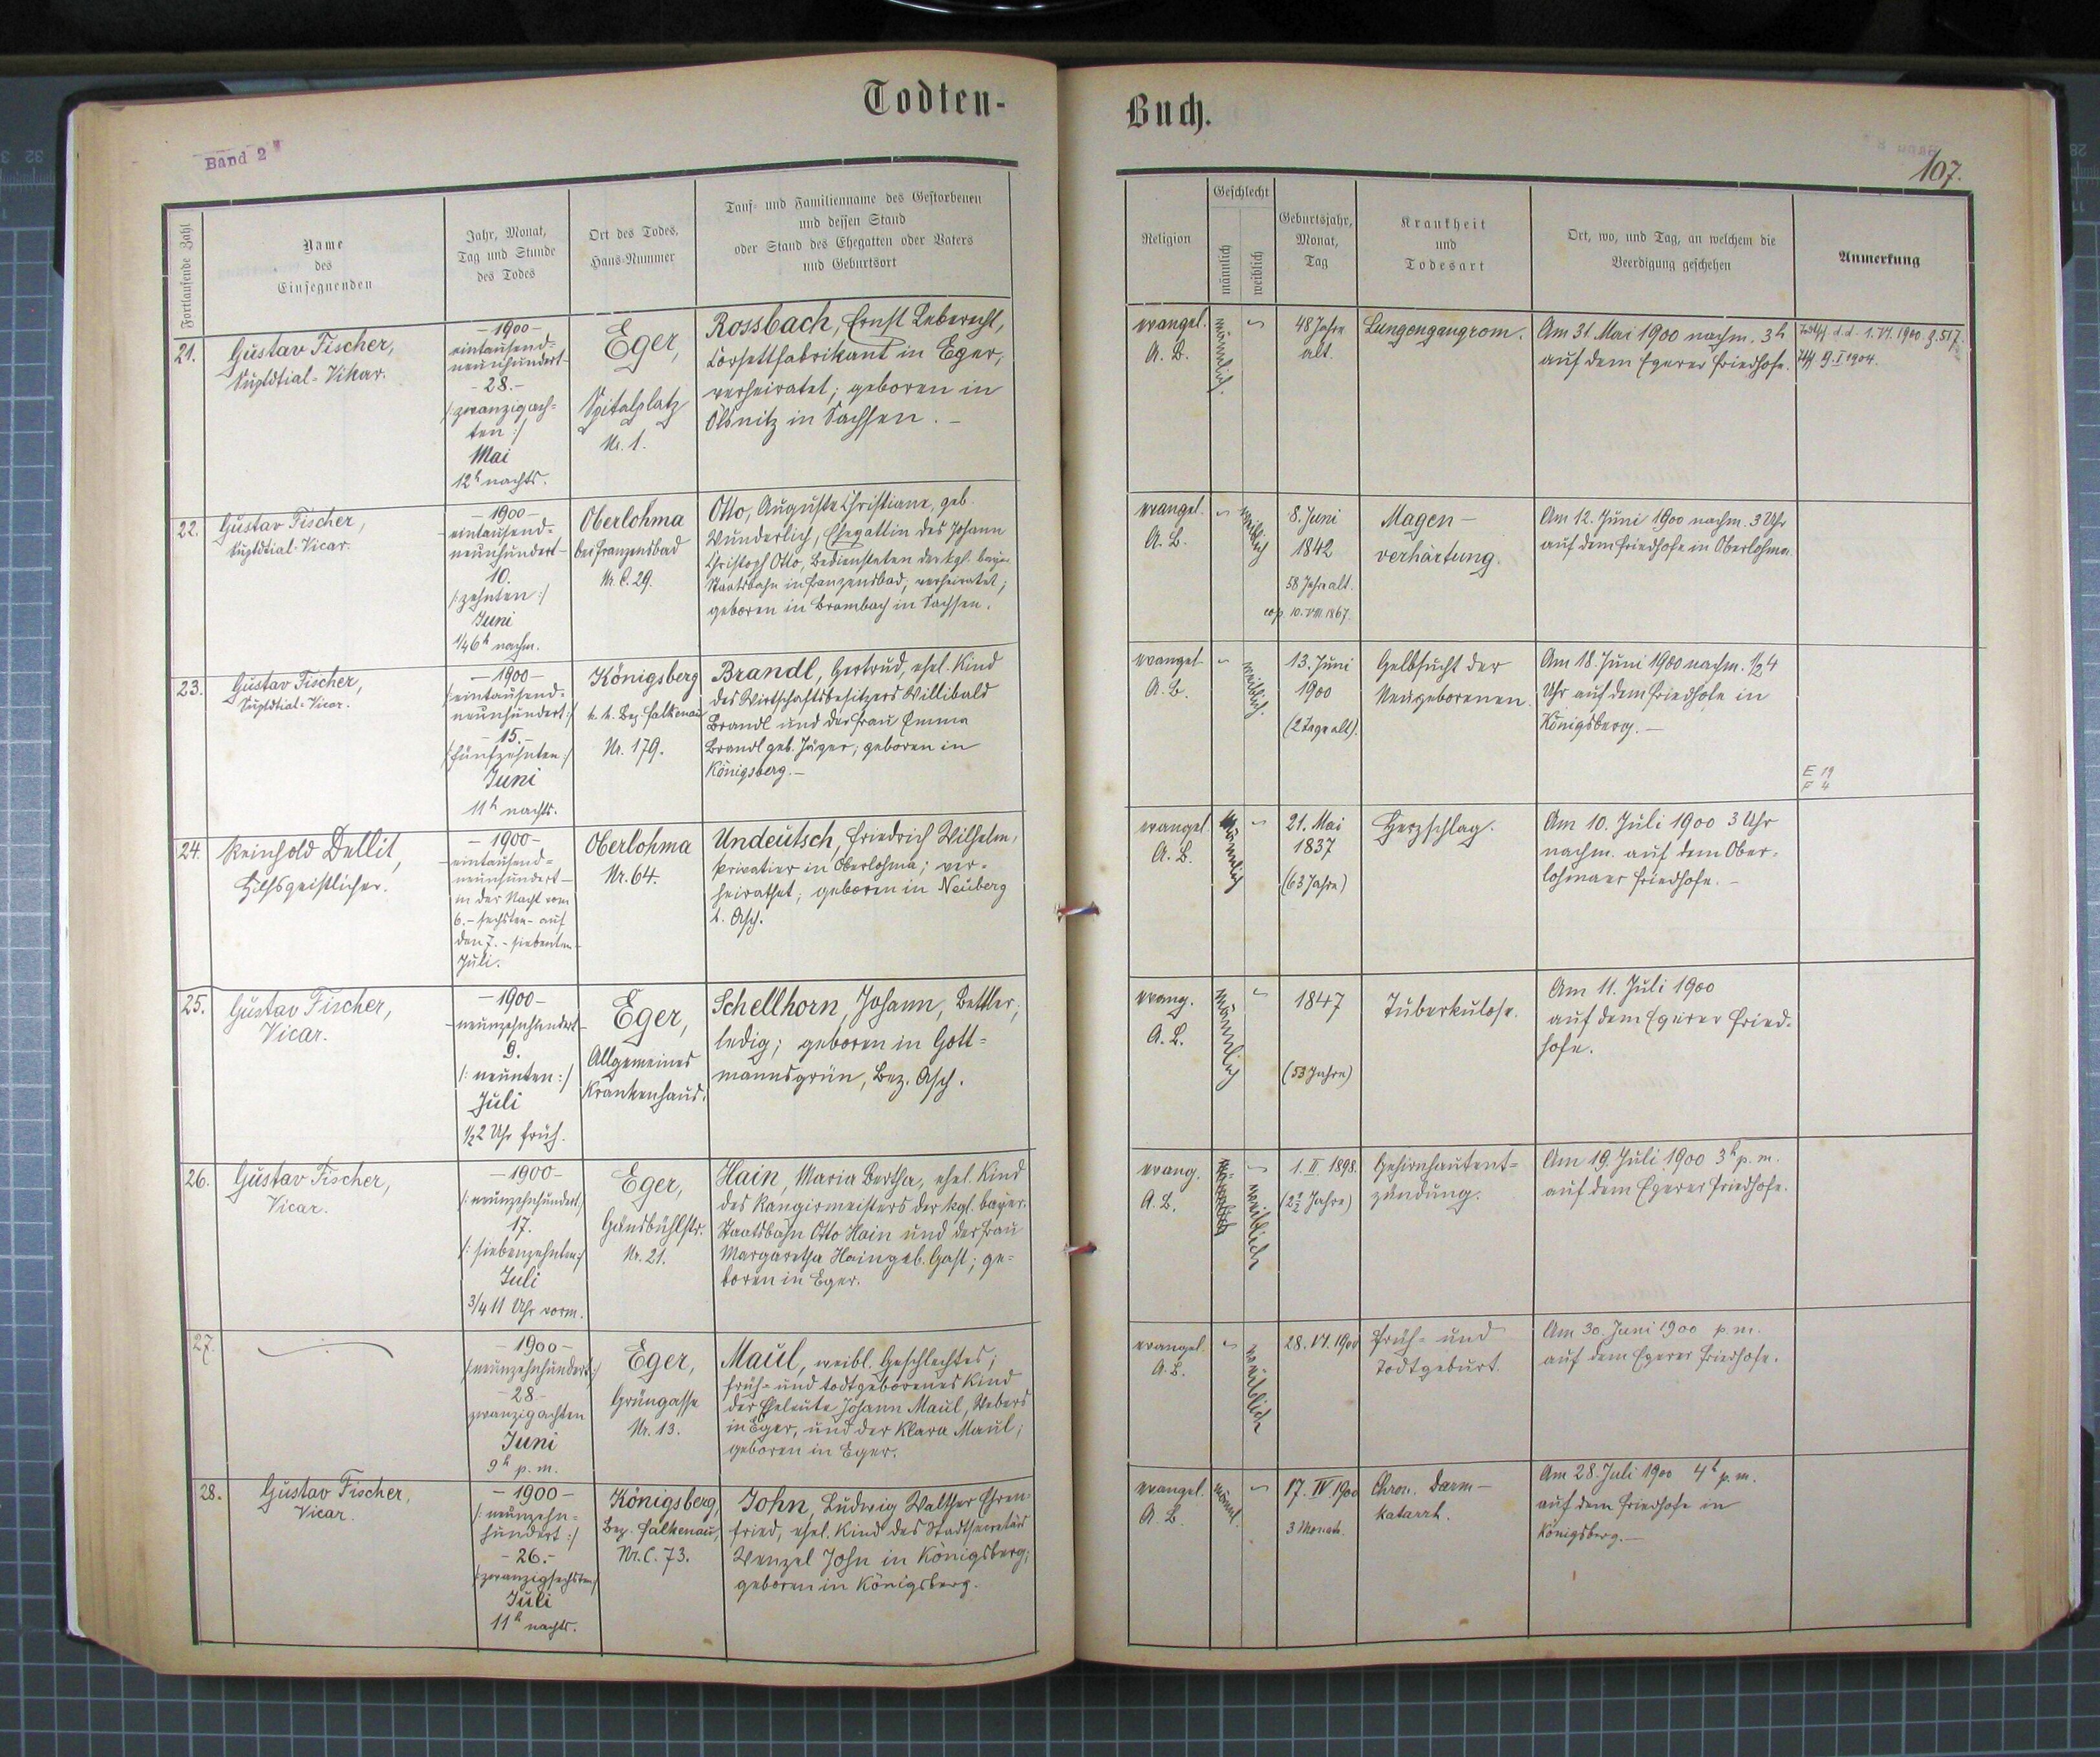 Todten-
Band 2
Fortlaufende Zahl
Name
des
Einsegnenden
Jahr, Monat,
Tag und Stunde
des Todes
Ort des Todes,
Haus-Nummer
Tauf- und Familienname des Gestorbenen
und dessen Stand
oder Stand des Ehegatten oder Vaters
und Geburtsort
21.
Gustav Fischer,
Suptdtial-Vikar.
-1900-
eintausend-
neunhundert-
-28.-
/:zwanzigach-
ten:/
Mai
12h nachts.
Eger,
Spitalplatz
Nr. 1.
Rossbach, Ernst Leberecht,
Corsettfabrikant in Eger,
verheiratet; geboren in
Ölsnitz in Sachsen. -
22.
Gustav Fischer,
Suptdtial-Vicar.
-1900-
-eintausend-
neunhundert-
10.
/:zehnten:/
Juni
1/4 6h nachm.
Oberlohma
bei Franzensbad
Nr. C. 29.
Otto, Auguste Christiane, geb.
Wunderlich, Ehegattin des Johann
Christoph Otto, Bediensteten der kgl. bayr.
Staatsbahn in Franzensbad, verheiratet;
geboren in Brambach in Sachsen.
23.
Gustav Fischer,
Suptdtial-Vicar.
-1900-
/:eintausend-
neunhundert:/
-15.-
/:fünfzehnten:/
Juni
11h nachts.
Königsberg
k. k. Bez. Falkenau
Nr. 179.
Brandl, Gertrud, ehel. Kind
des Wirtschaftsbesitzers Willibald
Brandl und der Frau Emma
Brandl geb. Jäger; geboren in
Königsberg.-
24.
Reinhold Dellit,
Hilfsgeistlicher.
-1900-
-eintausend-
neunhundert-
in der Nacht vom
6.-sechsten-auf
den 7.-siebenten-
Juli.
Oberlohma
Nr. 64.
Undeutsch, Friedrich Wilhelm,
Privatier in Oberlohma; ver-
heirathet; geboren in Neuberg
b. Asch.
25.
Gustav Fischer,
Vicar.
-1900-
-neunzehnhundert-
9.
/:neunten:/
Juli
1/2 2 Uhr früh.
Eger,
Allgemeines
Krankenhaus.
Schellhorn, Johann, Bettler,
ledig; geboren in Gott-
mannsgrün, Bez. Asch.
26.
Gustav Fischer,
Vicar.
-1900-
/:neunzehnhundert:/
17.
/:siebenzehnten:/
Juli
3/4 11 Uhr vorm.
Eger,
Gänsbühlstr.
Nr. 21.
Hain, Maria Bertha, ehel. Kind
des Rangirmeisters der kgl. bayer.
Staatsbahn Otto Hain und der Frau
Margaretha Hain geb. Gast; ge-
boren in Eger.
27.
-1900-
/:neunzehnhundert:/
-28-
zwanzigachten
Juni
9h p. m.
Eger,
Grüngasse
Nr. 13.
Maul, weibl. Geschlechtes;
früh- und todtgeborenes Kind
der Eheleute Johann Maul, Webers
in Eger, und der Klara Maul;
geboren in Eger.
28.
Gustav Fischer,
Vicar.
-1900-
/:neunzehn-
hundert:/
-26.-
/:zwanzigsechsten:/
Juli
11h nachts.
Königsberg,
Bez. Falkenau,
Nr. C. 73.
John, Ludwig Walther Ehren-
fried, ehel. Kind des Stadtsecretärs
Wenzel John in Königsberg;
geboren in Königsberg.
Buch.
107.
Religion
Geschlecht
männlich
weiblich
Geburtsjahr,
Monat,
Tag
Krankheit
und
Todesart
Ort, wo, und Tag, an welchem die
Beerdigung geschehen
Anmerkung
evangel.
A. B.
männlich.
48 Jahre
alt.
Lungengangrom.
Am 31. Mai 1900 nachm. 3h
auf dem Egerer Friedhofe.
d. d. 1.VI.1900 Z. 517.
9.I.1904.
evangel.
A. B.
weiblich
8. Juni
1842
58 Jahre alt.
cop. 10.VIII.1867.
Magen-
verhärtung.
Am 12. Juni 1900 nachm. 3 Uhr
auf dem Friedhofe in Oberlohma.
evangel.
A. B.
weiblich.
13. Juni
1900
(2 Tage alt).
Gelbsucht der
Neugeborenen.
Am 18. Juni 1900 nachm. 1/2 4
Uhr auf dem Friedhofe in
Königsberg.-
E 19
F 4
evangel.
A. B.
männlich
21. Mai
1837
(63 Jahre)
Herzschlag.
Am 10. Juli 1900 3 Uhr
nachm. auf dem Ober-
lohmaer Friedhofe.-
evang.
A. B.
männlich
1847
(53 Jahre)
Tuberkulose.
Am 11. Juli 1900
auf dem Egerer Fried-
hofe.
evang.
A. B.
männlich
weiblich
1. II 1898.
(2 1/2 Jahre)
Gehirnhautent-
zündung.
Am 19. Juli 1900 3h p. m.
auf dem Egerer Friedhofe.
evangel.
A. B.
weiblich
28. VI. 1900
Früh- und
Todtgeburt.
Am 30. Juni 1900 p. m.
auf dem Egerer Friedhofe.
evangel.
A. B.
männl.
17. IV 1900
3 Monate.
Chron. Darm-
katarrh.
Am 28. Juli 1900 4h p. m.
auf dem Friedhofe in
Königsberg.-